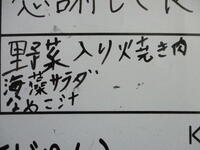 感謝して食
野菜入り焼き肉
海藻サラダ
なめこ汁
K